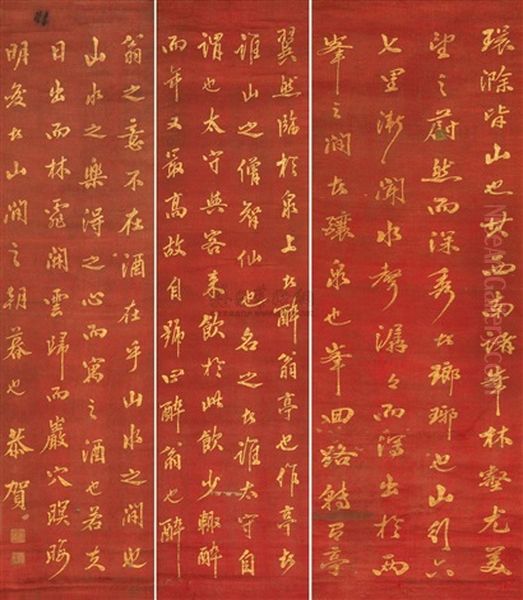 環滁皆山也其西南諸峯林壑尤美
望之蔚然而深秀者瑯琊也山行六
七里漸聞水聲潺々而瀉出於兩
峯之間者釀泉也峯回路轉有亭
翼然臨於泉上者醉翁亭也作亭者
誰山之僧智仙也名之者誰太守自
謂也太守與客来飲於此飲少輒醉
而年又最高故自號曰醉翁也醉
翁之意不在酒在乎山水之間也
山水之樂得之心而寓之酒也若夫
日出而林霏開雲歸而巖穴暝晦
明變者山間之朝暮也 恭賀